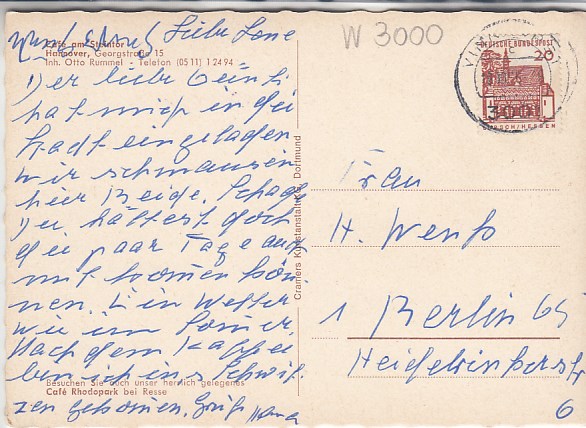 W 3000
Liebe Lone
Café am Steintor
Hannover, Georgstraße 15
Inh. Otto Rummel - Telefon (0511) 12494
Der liebe Heinti
hat mich in die
Stadt eingeladen
wir schmausen
hier Beide. Schade
Du hättest doch
die paar Tage auch
mit kommen kön-
nen. Ein Wetter
wie im Somer.
Nach dem Kaffee
bin ich ins Schwit-
Besuchen Sie auch unser herrlich gelegenes
Café Rhodopark bei Resse
zen gekomen. Gruß
Cramers Kunstanstalt KG, Dortmund
DEUTSCHE BUNDESPOST
20
LORSCH/HESSEN
Frau
H. Wenß
1 Berlin 65
6